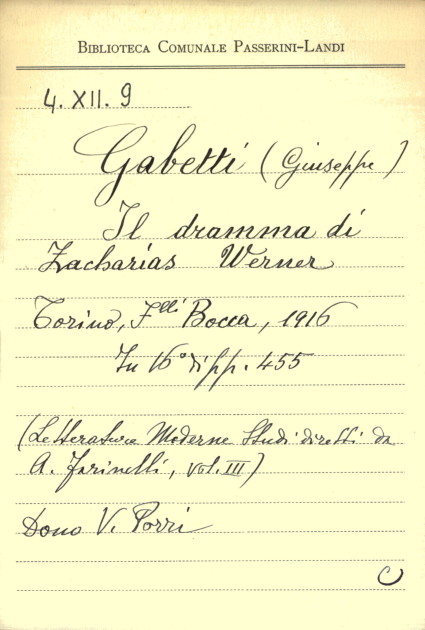 BIBLIOTECA COMUNALE PASSERINI-LANDI
4. XII. 9
Gabetti (Giuseppe)
Il dramma di
Zacharias Werner
Torino, F.lli Bocca, 1916
In 16° di pp. 455
(Letterature Moderne Studi diretti da
A. Farinelli, vol. III)
Dono V. Porri
C